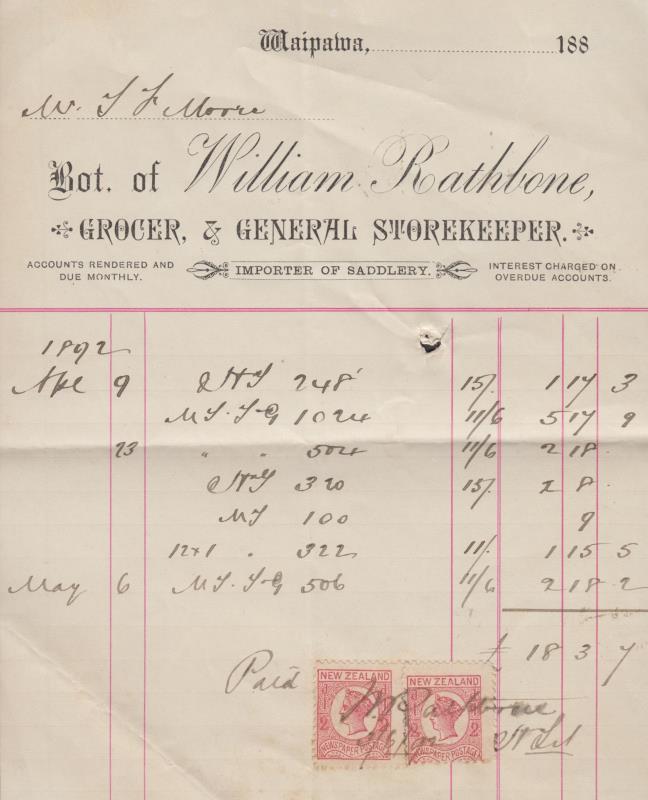 Waipawa, 188
Mr. Moore
Bot. of William Rathbone,
GROCER, & GENERAL STOREKEEPER.
ACCOUNTS RENDERED AND DUE MONTHLY.
IMPORTER OF SADDLERY.
INTEREST CHARGED ON OVERDUE ACCOUNTS.
1892
Apl 9 248 15/. 1 17 3
1024 11/6 5 17 9
23 " " 504 11/6 2 18 .
320 15/. 2 8 .
100 9
12x1 " 322 11/. 1 15 5
May 6 506 11/6 2 18 2
£ 18 3 7
Paid
NEW ZEALAND NEW ZEALAND
W. Rathbone
NEWSPAPER POSTAGE NEWSPAPER POSTAGE